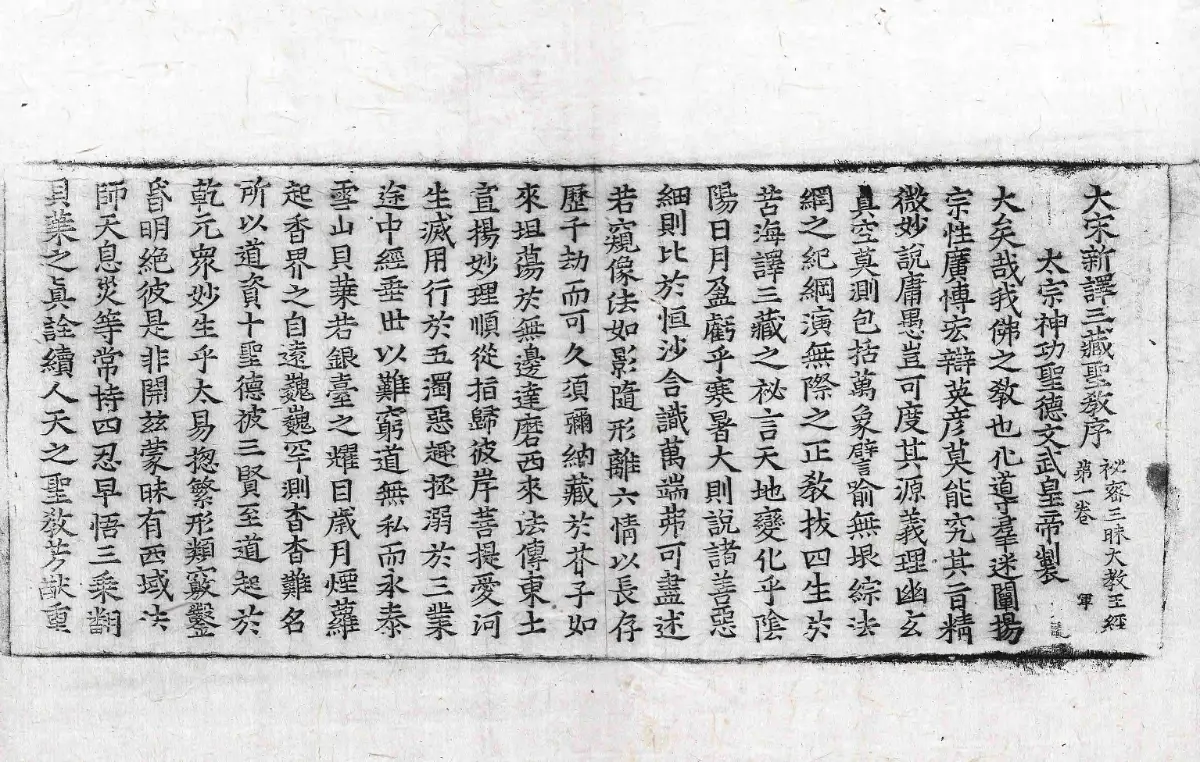 大宋新譯三藏聖敎序
祕密三昧大教王經
第一卷
軍
太宗神功聖德文武皇帝製
大矣哉我佛之敎也化導羣迷闡揚
宗性廣博宏辯英彦莫能究其旨精
微妙說庸愚豈可度其源義理幽玄
真空莫測包括萬象譬喻無垠綜法
網之紀綱演無際之正敎拔四生於
苦海譯三藏之祕言天地變化乎陰
陽日月盈虧乎寒暑大則說諸善惡
細則比於恒沙含識萬端弗可盡述
若窺像法如影隨形離六情以長存
歷千劫而可久須彌納藏於芥子如
來坦蕩於無邊達磨西來法傳東土
宣揚妙理順從指歸彼岸菩提愛河
生滅用行於五濁惡趣拯溺於三業
途中經垂世以難窮道無私而永泰
雪山貝葉若銀臺之耀日歲月煙蘿
起香界之自遠巍巍罕測杳杳難名
所以道資十聖德彼三賢至道起於
乾元衆妙生乎太易揔繁形類竅鑿
昏明絶彼是非開玆蒙昧有西域法
師天息災等常持四忍早悟三乘翻
貝葉之眞詮續人天之聖敎芳猷重